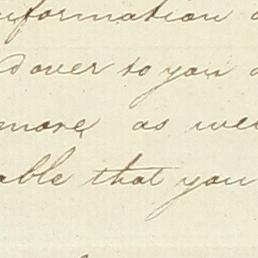 nformation
d over to you
more, as wel
able that you